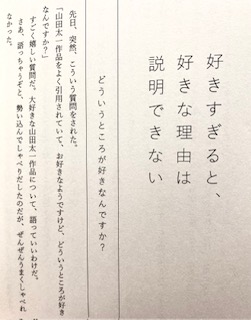 好きすぎると、
好きな理由は
説明できない
どういうところが好きなんですか?
先日、突然、こういう質問をされた。
「山田太一作品をよく引用されていて、お好きなようですけど、どういうところが好き
なんですか?」
すごく嬉しい質問だ。大好きな山田太一作品について、語っていいわけだ。
さあ、語っちゃうぞと、勢い込んでしゃべりだしたのだが、ぜんぜんうまくしゃべれ
なかった。